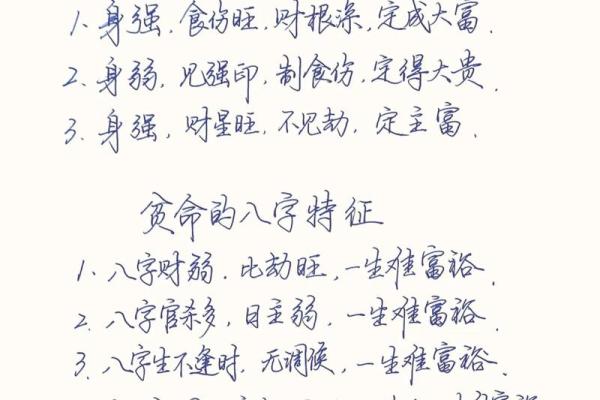 1、身强、食伤旺、财根深,定成大富.
2、身弱,见强印,制食伤,定得大贵.
3、身强,财星旺,不见劫,定主富.
贫命的八字特征
1、八字财弱、比劫旺,一生难富裕.
2、八字官杀多,日主弱,一生难富裕.
3、八字生不逢时,无调候,一生难富裕.